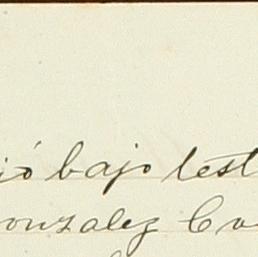 ió bajo test
onzalez Co